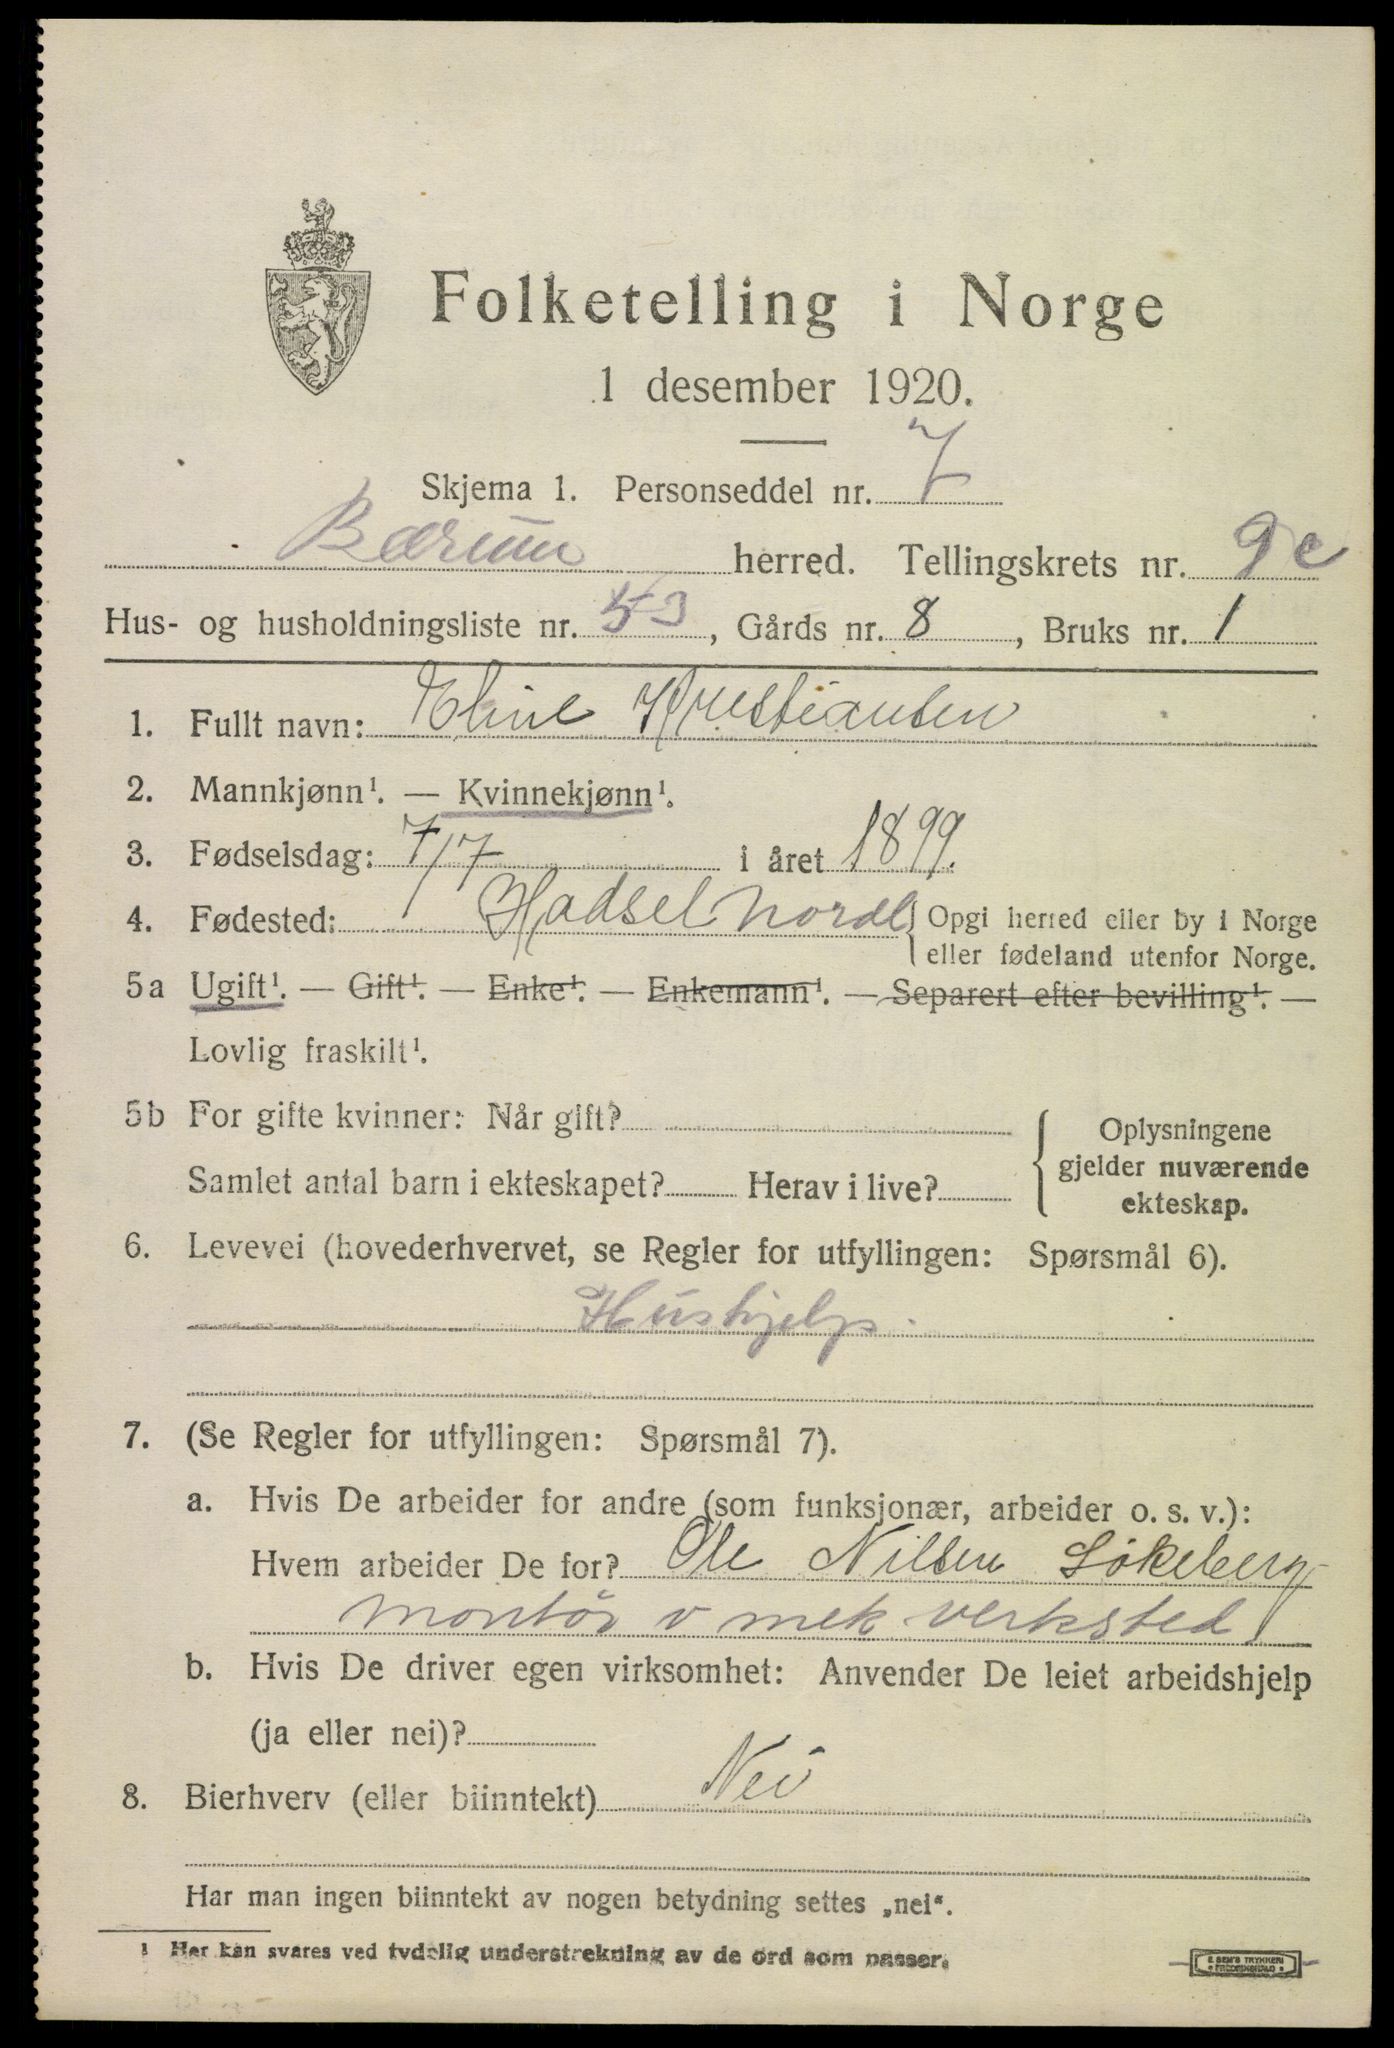 Folketelling i Norge
1 desember 1920.
Skjema 1. Personseddel nr. 7
Bærum herred. Tellingskrets nr. 9c
Hus- og husholdningsliste nr. 53, Gårds nr. 8, Bruks nr. 1
1. Fullt navn: Eline Kristiansen
2. Mannkjønn¹. — Kvinnekjønn¹.
3. Fødselsdag: 7/7 i året 1899.
4. Fødested: Hadsel Nordl { Opgi herred eller by i Norge
eller fødeland utenfor Norge.
5a Ugift¹. — Gift¹. — Enke¹. — Enkemann¹. — Separert efter bevilling¹. —
Lovlig fraskilt¹.
5b For gifte kvinner: Når gift?
Samlet antal barn i ekteskapet? Herav i live?
{ Oplysningene
gjelder nuværende
ekteskap.
6. Levevei (hovederhvervet, se Regler for utfyllingen: Spørsmål 6).
Hushjelp.
7. (Se Regler for utfyllingen: Spørsmål 7).
a. Hvis De arbeider for andre (som funksjonær, arbeider o. s. v.):
Hvem arbeider De for? Ole Nilsen Løkeberg
montör v mek verksted
b. Hvis De driver egen virksomhet: Anvender De leiet arbeidshjelp
(ja eller nei)?
8. Bierhverv (eller biinntekt) Nei
Har man ingen biinntekt av nogen betydning settes „nei“.
¹ Her kan svares ved tydelig understrekning av de ord som passer.